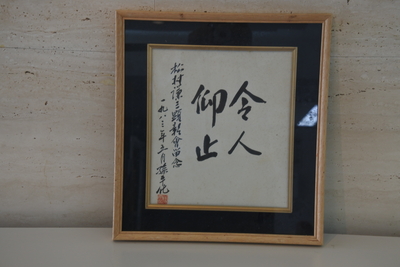 令人
仰止
松村謙三顕彰會留念
一九八三年五月孫平化